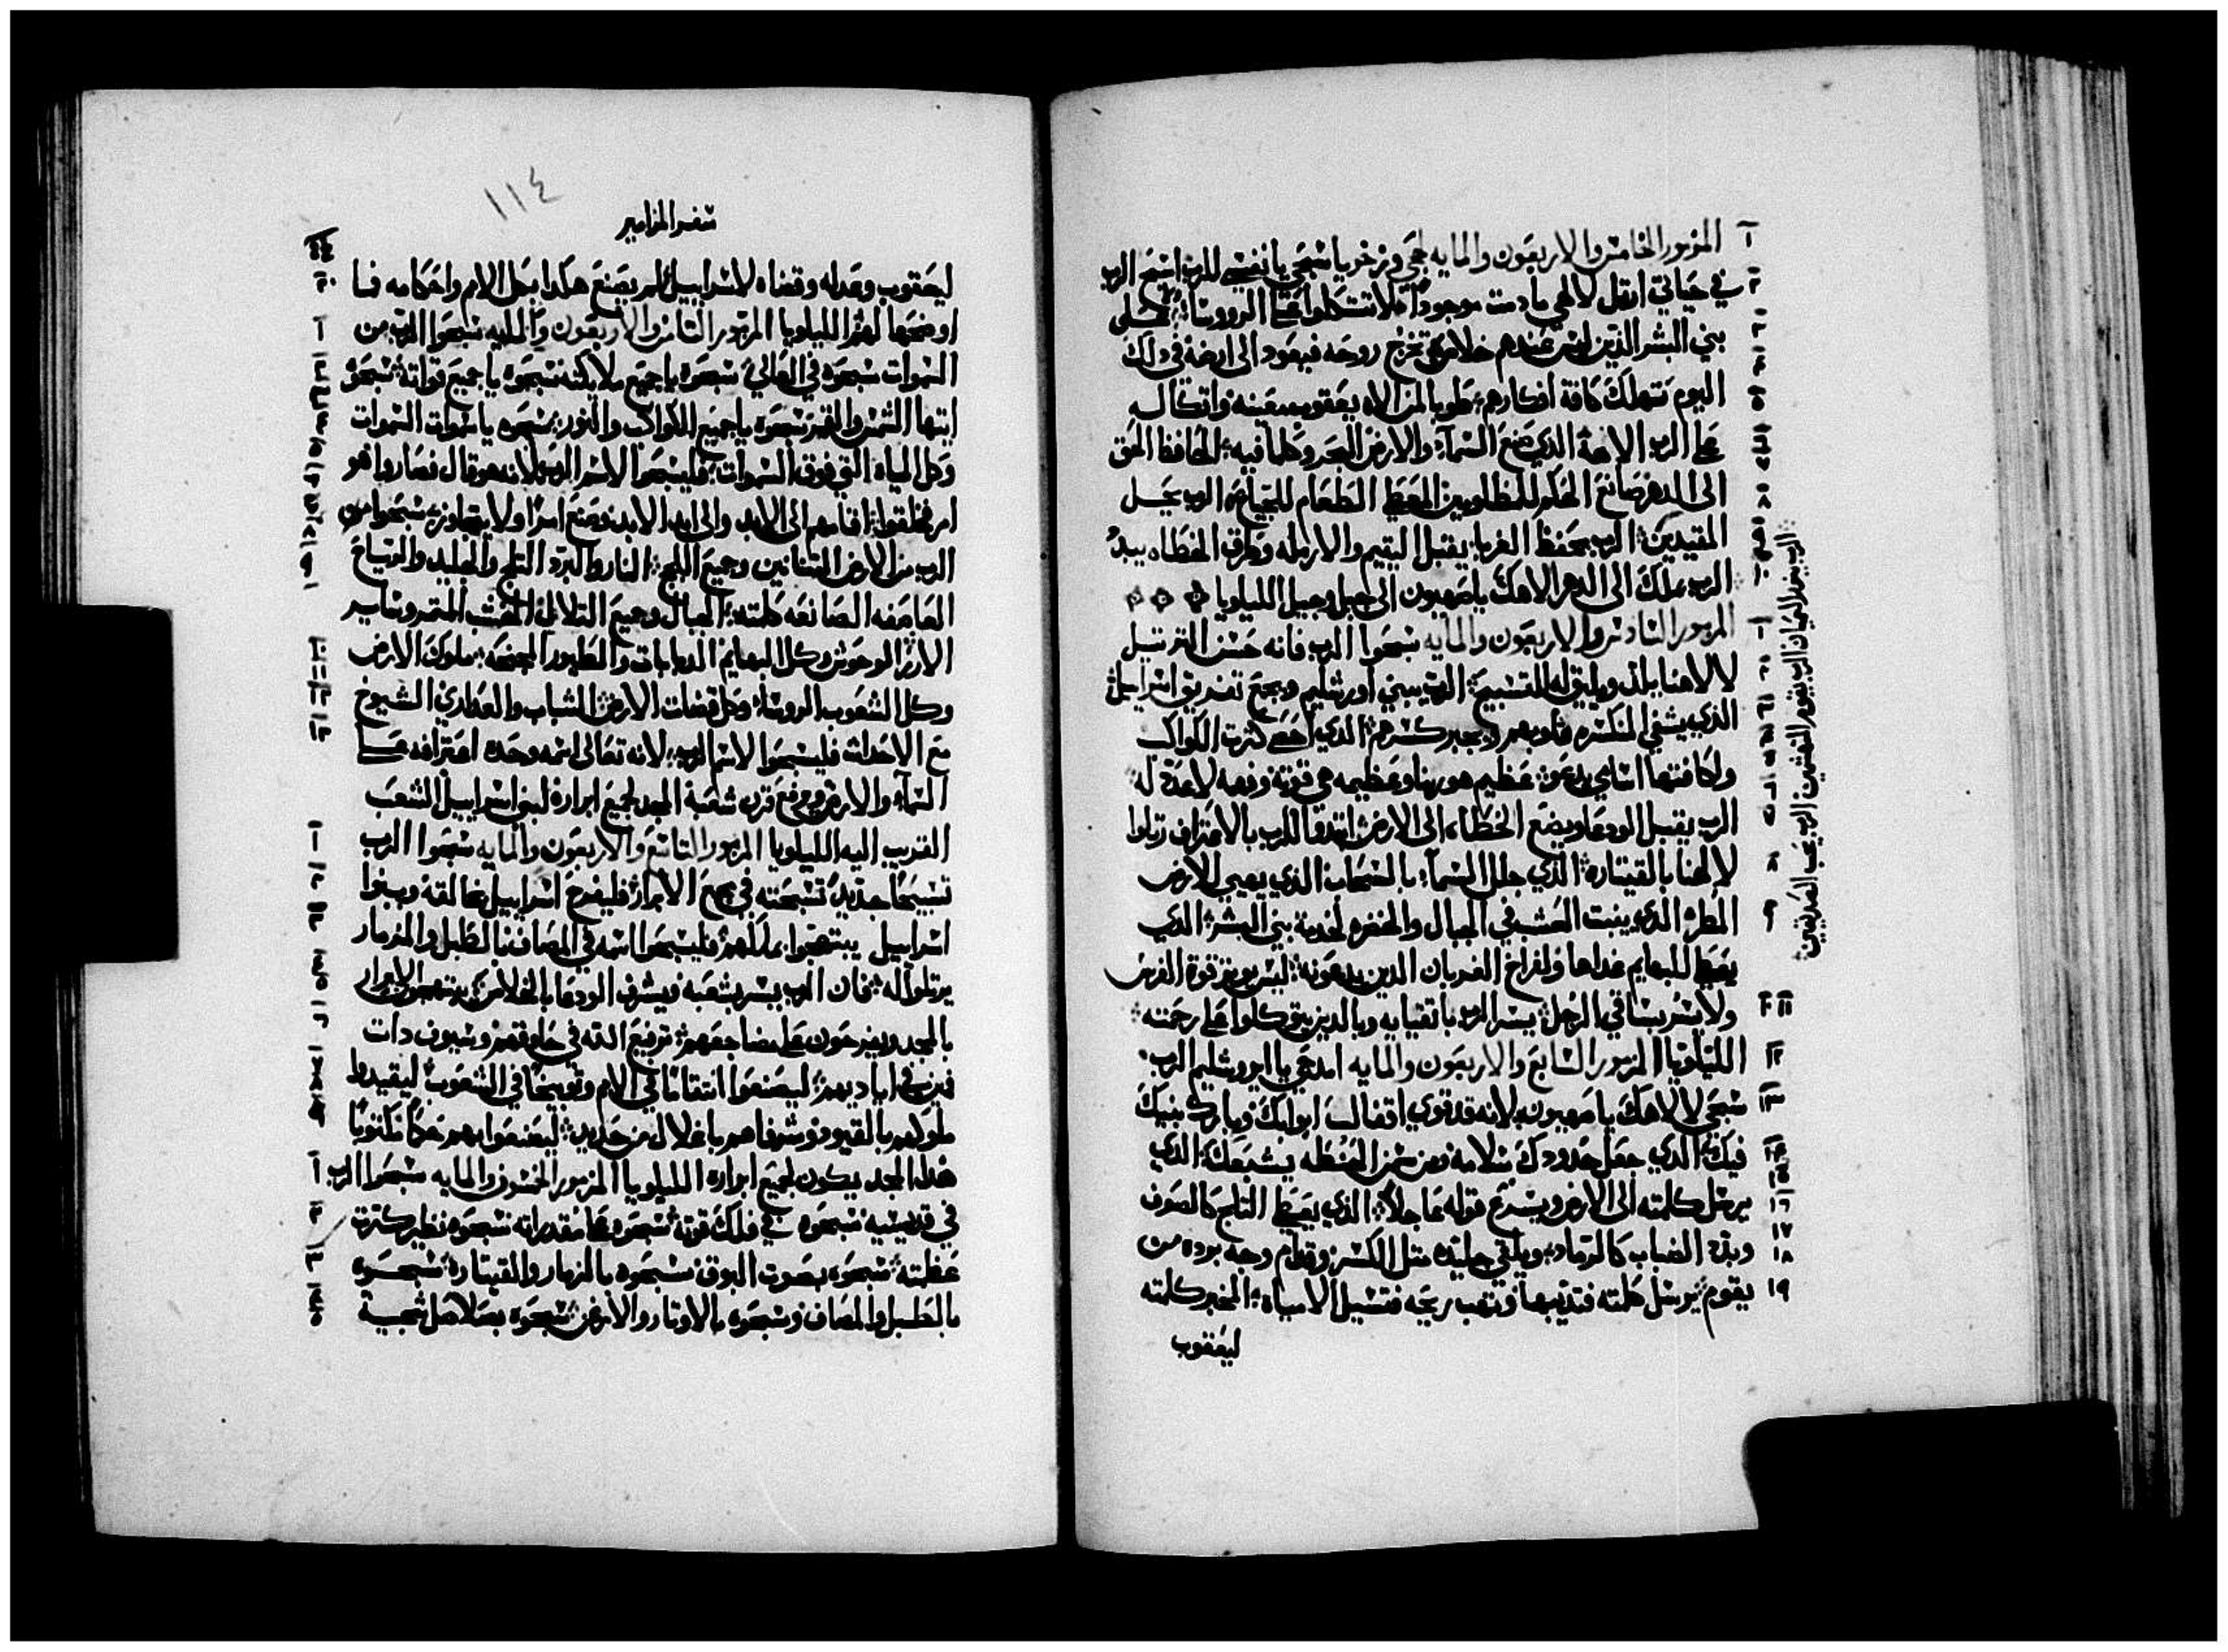 المزمور الخامس والاربعون والمايه لحجي وزخريا سبحي يا نفسي للرب اسبح الرب
في حياتي ارتل لالهي ما دمت موجوداً فلا تتكلوا على الرووسا ولا على
بني البشر الذين ليس عندهم خلاص تخرج روحه فيعود الى ارضه في ذلك
اليوم تهلك كافة افكارهم طوبا لمن الاه يعقوب معينه واتكاله
على الرب الاهه الذي صنع السمآء والارض البحر وكلما فيه الحافظ الحق
الى الدهر صانع الحكم للمظلومين المعطي الطعام للجياع الرب يحل
المقيدين الرب يحفظ الغربا يقبل اليتيم والارمله وطرق الخطاه يبيد
الرب يملك الى الدهر الاهك يا صهيون الى جيل وجيل الليلويا
المزمور السادس والاربعون والمايه سبحوا الرب فانه حسن الترتيل
لالاهنا يلذ ويليق له التسبيح الرب يبني اورشليم ويجمع تفريق اسراييل
الذي يشفي المنكسره قلوبهم ويجبر كسرهم الذي احصى كثرت الكواكب
ولكافتها اسامي يدعو عظيم هو ربنا وعظيمه هي قوته وفهمه لا عدة له
الرب يقبل الودعا ويضع الخطاه الى الارض ابتدوا للرب بالاعتراف رتلوا
لالهنا بالقيتاره الذي جلل السمآء بالسحاب الذي يهيي للارض
المطر الذي ينبت العشب في الجبال والخضره لخدمة بني البشر الذي
يعطي للبهايم غداها ولفراخ الغربان الذين يدعونه ليس يوثر قوة الفرس
ولا يسر بساقي الرجل يسر الرب باتقيايه وبالذين يتوكلوا على رحمته
الليلويا المزمور السابع والاربعون والمايه امدحي يا ايروشليم الرب
سبحي لالاهك يا صهيون لانه قد قوي اقفال ابوابك وبارك بنيك
فيك الذي جعل حدودك سلامه ومن شحم الحنطه يشبعك الذي
يرسل كلمته الى الارض ويسرع قوله عاجلاً الذي يعطي الثلج كالصوف
ويذر الضباب كالرماد ويلقي جليده مثل الكسر وقدام وجه برده من
يقوم يرسل كلمته فتذيبها وتهب ريحه فتسيل الامياه المخبر كلمته
ليعقوب
الرب ينير العميان الرب يقوم المهشمين الرب يحب الصديقين
١١٤
سفر المزامير
ليعقوب وعدله وقضاه لاسراييل لم يصنع هكذا بكل الامم واحكامه فما
اوضحها لهم الليلويا المزمور الثامن والاربعون والمايه سبحوا الرب من
السموات سبحوه في العالي سبحوه يا جميع ملايكته سبحوه يا جميع قواته سبحوه
ايتها الشمس والقمر سبحوه يا جميع الكواكب والنور سبحوه يا سموات السموات
وكل المياه التي فوق السموات فليسبحوا لاسم الرب لانه هو قال فصاروا هو
امر فخلقوا اقامهم الى الابد والى ابد الابد وضع امراً ولا يتجاوز سبحوا من
الرب من الارض التنانين وجميع اللجج النار والبرد الثلج والجليد والرياح
العاصفه الصانعه كلمته الجبال وجميع التلال الخشب المثمر وساير
الارز الوحوش وكل البهايم الدبابات والطيور المجنحه ملوك الارض
وكل الشعوب الروسا وكل قضات الارض الشباب والعذاري الشيوخ
مع الاحداث فليسبحوا لاسم الرب لانه تعالى اسمه وحده اعترافه على
السمآء والارض ويرفع قرن شعبه المجد لجميع ابراره لبني اسراييل الشعب
القريب اليه الليلويا المزمور التاسع والاربعون والمايه سبحوا الرب
تسبيحاً جديداً تسبحته في مجمع الابرار فليفرح اسراييل بخالقه وبنوا
اسراييل يبتهجوا بملكهم فليسبحوا اسمه في المصاف بالطبل والمزمار
يرتلوا له فان الرب يسر بشعبه ويشرف الودعا بالخلاص يبتهجون الابرار
بالمجد ويفرحون على مضاجعهم ترفيع الله في حلوقهم وسيوف ذات
فمين في اياديهم ليصنعوا انتقاماً في الامم وتوبيخاً في الشعوب ليقيدوا
ملوكهم بالقيود وشرفاهم باغلال من حديد ليصنعوا بهم حكماً مكتوباً
هذا المجد يكون لجميع ابراره الليلويا المزمور الخمسون والمايه سبحوا الرب
في قديسيه سبحوه في فلك قوته سبحوه على مقدراته سبحوه نظير كثرت
عظمته سبحوه بصوت البوق سبحوه بالمزمار والقيتاره سبحوه
بالطبل والمصاف وسبحوه بالاوتار والارغن سبحوه بصلاصل شجية